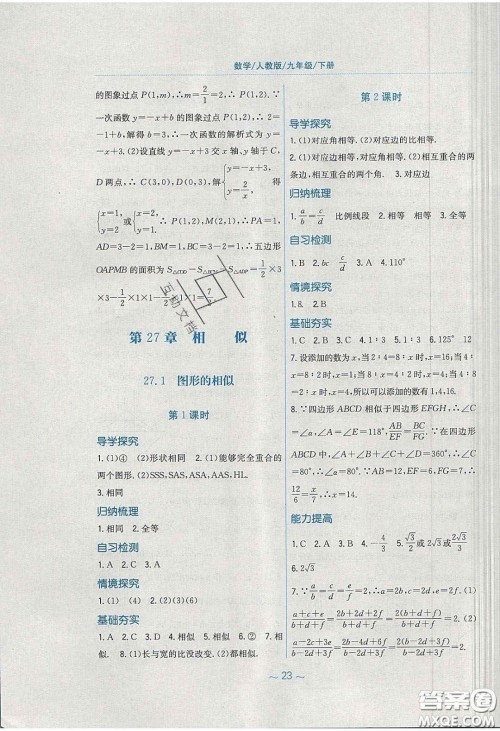 数学/人教版/九年级/下册
的图象过点 P(1,m),∴m=2/1=2,∴P(1,2).∵
一次函数 y=-x+b 的图象过点 P(1,2),∴2=
-1+b,解得 b=3.∴一次函数的解析式为 y=-x
+3.(2)设直线 y=-x+3 交 x 轴、y 轴于 C,
D 两点,∴C(3,0),D(0,3).解{y=-x+3, y=2/x,得
{x=1, y=2或{x=2, y=1.∴P(1,2),M(2,1),∴PA=1,
AD=3-2=1,BM=1,BC=3-2=1,∴五边形
×3-1/2×1×1-1/2×1×1=7/2.
第 27 章 相 似
27.1 图形的相似
第 1 课时
导学探究
1.(1)④ (2)形状相同 2.(1)能够完全重合的
两个图形.(2)SSS,SAS,ASA,AAS,HL.
3.相同
归纳梳理
1.相同 2.全等
自习检测
1.A 2.C 3.A
情境探究
1.(1) (4) 2.(2)(3)(6)
基础夯实
1.A 2.C 3.D 4.相似 5.相似 6.② 7.相似
8.(1)长与宽的比没改变.(2)都相似.
第 2 课时
导学探究
1.(1)对应角相等.(2)对应边的比相等.
2.(1)对应边相等,对应角相等.(2)相互重合的两
条边,相互重合的两个角. 3.对应边
归纳梳理
1.a/b=c/d 比例线段 2.相等 相等 3.全等
自习检测
1.B 2.bc c/d 3.A 4.110°
情境探究
1.8 2.B
基础夯实
1.C 2.C 3.B 4.1∶3 5.1∶2 6.125° 12
7.设添加的数为 x,当 2∶4=8∶x 时,x=16;当 4∶
x=8∶2 时,x=1;当 2∶4=x∶8 时,x=4;当 4∶
x=2∶8 时,x=16.所以可以添加的数有 1,4,16.
8.∵四边形 ABCD 相似于四边形 EFGH,∴∠F
=∠B,∠A=∠E=118°,AB/EF=BC/FG.∵在四边形
ABCD 中,∠A+∠B+∠C+∠D=360°,∴∠F=
12/6=x/7,∴x=14.
能力提高
5.√3/2或2√3或2√3/3
6.2√3
7.∵a/b=c/d=e/f=2,∴a=2b,c=2d,e=2f.(1)
(a+c+e)/(b+d+f)=(2b+2d+2f)/(b+d+f)=2(b+d+f)/(b+d+f)=2.(2)
(a-2c+3e)/(b-2d+3f)=(2b-4d+6f)/(b-2d+3f)=2(b-2d+3f)/(b-2d+3f)
~ 23 ~
互动文档
答案圈
MXQE.COM